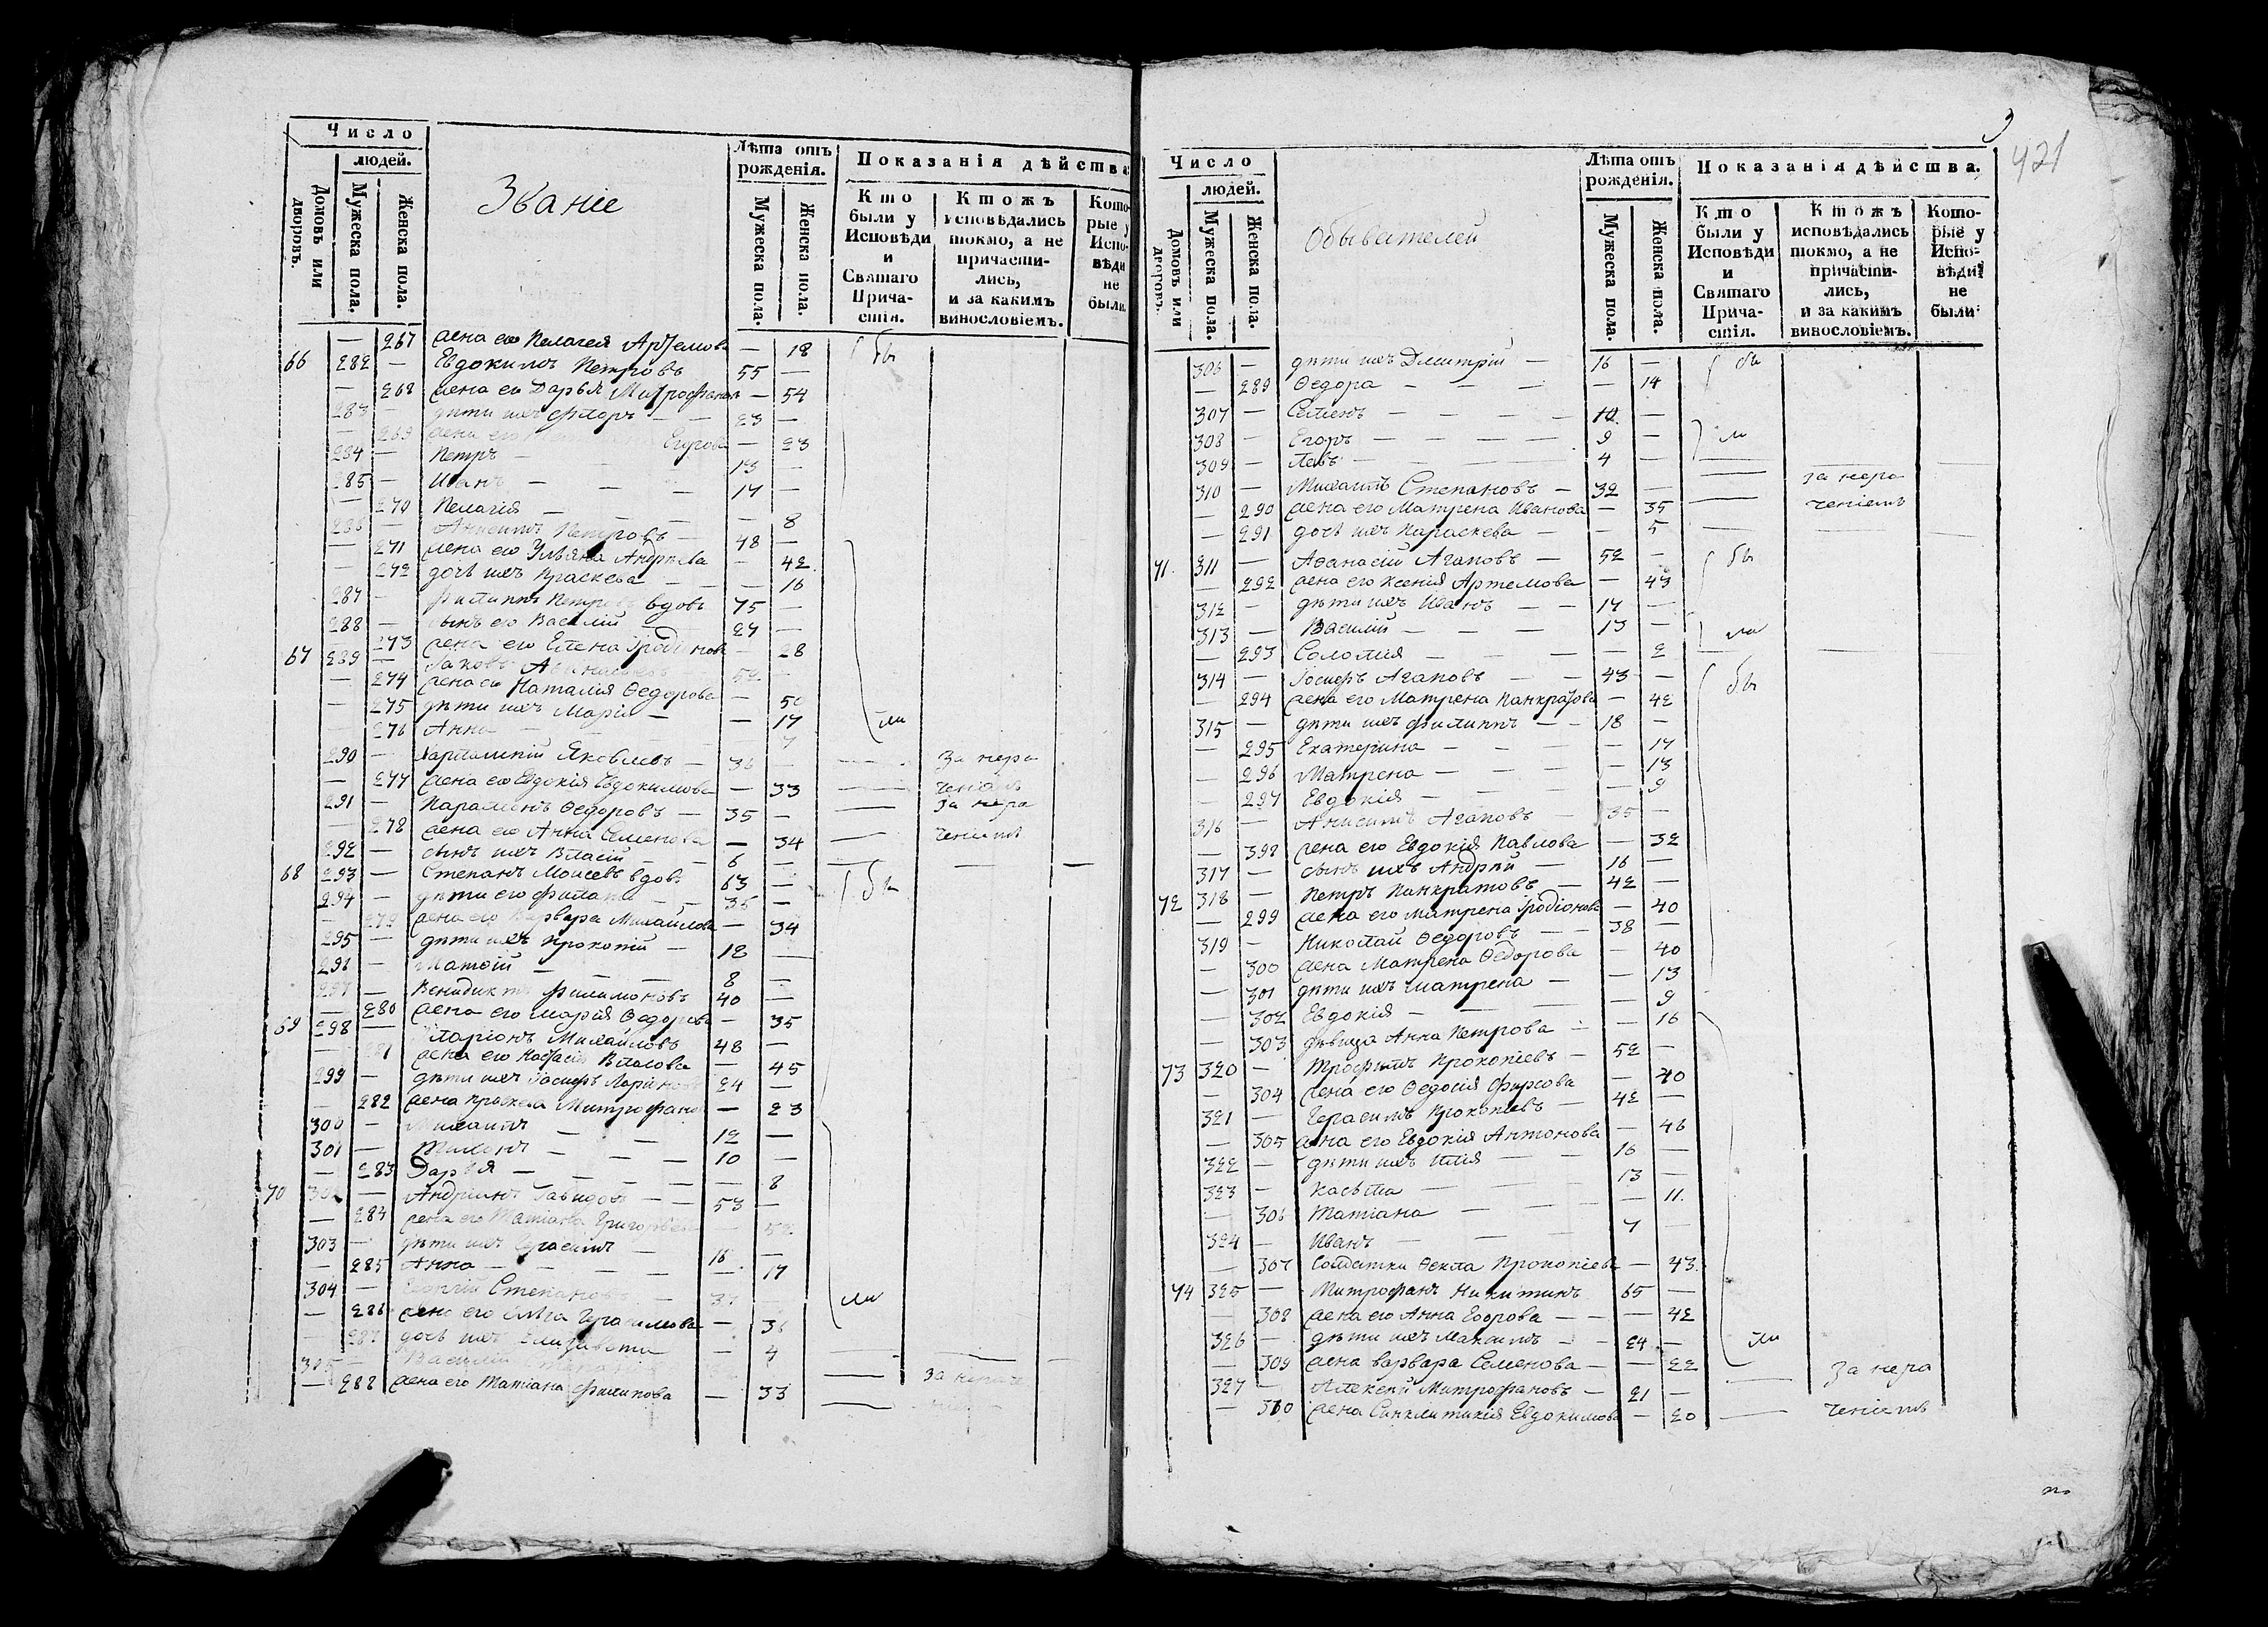 Число
людей.
Домовъ или дворовъ.
Мужеска пола.
Женска пола.
Званіе
Лѣта отъ рожденія.
Мужеска пола.
Женска пола.
Показанія дѣйства
Кто были у Исповѣди и Святаго Причастія.
Ктожъ исповѣдались токмо, а не причастились, и за какимъ винословіемъ.
Которые у Исповѣди не были.
— 267 жена его Пелагея Артемова — 18 бы
66 282 — Евдокимъ Петровъ 55 —
— 268 жена его Дарья Митрофанова — 54
283 — дѣти ихъ Флоръ — 23 —
— 269 жена его Егорова — 23
284 — Петръ — 13 —
285 — Иванъ — 17 —
— 270 Пелагія — — 8
286 — Анисимъ Петровъ — 48 —
— 271 жена его Ульяна Андреева — 42
— 272 дочь ихъ Праскева — — 16
287 — Филиппъ Петровъ вдовъ 75 —
288 — сынъ его Василій 27 —
— 273 жена его Елена Іродіонова — 28
67 289 — Іаковъ 52 —
— 274 жена его Наталія Ѳедорова — 50
— 275 дѣти ихъ Марія — — 17 ли
— 276 Анна — 7
290 — Яковлевъ — 36 — за нера
— 277 жена его Евдокія Евдокимова — 33 — ченіемъ
291 — Парамонъ Ѳедоровъ — 35 — за нера
— 278 жена его Анна Семенова — 34 — ченіемъ
292 — сынъ ихъ Власій — 6 —
68 293 — Степанъ Моисеевъ вдовъ 63 — бы
294 — дѣти его 35 —
— 279 жена его Варвара Михайлова — 34
295 — дѣти ихъ Прокопій — 12 —
296 — Матѳій — 8 —
297 — Венидиктъ Филимоновъ 40 —
— 280 жена его Марія Ѳедорова — 35
69 298 — Иларіонъ Михайловъ 48 —
— 281 жена его Власова — 45
299 — дѣти ихъ Іосифъ 24 —
— 282 жена Митрофанова — 23
300 — Михаилъ — 12 —
301 — Тихонъ — 10 —
— 283 Дарья — — 8
70 302 — Андріянъ Давидовъ — 53 —
— 284 жена его Татіана Григорьева — 52
303 — дѣти ихъ Герасимъ — 18 —
— 285 Анна — — 17
304 — Степановъ — 37 — ли
— 286 жена его Герасимова — 36
— 287 дочь ихъ Елизавета — 4
305 — Василій
— 288 жена его Татіана Филипова — 33 — за нера
3
421
Число
людей.
Домовъ или дворовъ.
Мужеска пола.
Женска пола.
Обывателей
Лѣта отъ рожденія.
Мужеска пола.
Женска пола.
Показанія дѣйства.
Кто были у Исповѣди и Святаго Причастія.
Ктожъ исповѣдались токмо, а не причастились, и за какимъ винословіемъ.
Которые у Исповѣди не были
306 — дѣти ихъ Дмитрій — 16 — бы
— 289 Ѳедора — — 14
307 — Семенъ — 12 —
308 — Егоръ — 9 — ли
309 — Левъ — 4 —
310 — Михаилъ Степановъ — 32 — за нера
— 290 жена его Матрена Иванова — 35 — ченіемъ
— 291 дочь ихъ Параскева — — 5
71 311 — Аѳанасій Агаповъ — 52 — бы
— 292 жена его Ксенія Артемова — 43
312 — дѣти ихъ Иванъ — 17 —
313 — Василій — 13 — ли
— 293 Соломія — — 2
314 — Іосифъ Агаповъ — 43 — бы
— 294 жена его Матрена Панкратова — 42
315 — дѣти ихъ Филиппъ — 18 —
— 295 Екатерина — — 17
— 296 Матрена — — 13
— 297 Евдокія — — 9
316 — Анисимъ Агаповъ — 35 —
— 398 жена его Евдокія Павлова — 32
317 — сынъ ихъ Андрей — 16 —
72 318 — Петръ Панкратовъ — 42 —
— 299 жена его Матрена Іродіонова — 40
319 — Николай Ѳедоровъ — 38 —
— 300 жена Матрена Ѳедорова — 40
— 301 дѣти ихъ Матрена — — 13
— 302 Евдокія — — 9
— 303 дѣвица Анна Петрова — — 16
73 320 — Трофимъ Прокопіевъ — 52 —
— 304 жена его Ѳедосія Фирсова — 40
321 — Герасимъ Прокопіевъ — 42 —
— 305 жена его Евдокія Антонова — 46
322 — дѣти ихъ Илія — 16 —
323 — 13 —
— 306 Татіана — — 11.
324 — Иванъ — 7 —
— 307 Солдатка Ѳекла Прокопіева — 43.
74 325 — Митрофанъ Никитинъ 65 —
— 308 жена его Анна Егорова — — 42
326 — дѣти ихъ Максимъ — 24 — ли
— 309 жена Варвара Семенова — — 22
327 — Алексѣй Митрофановъ — 21 — за нера
— 310 жена Синклитикія Евдокимова — 20 — ченіемъ